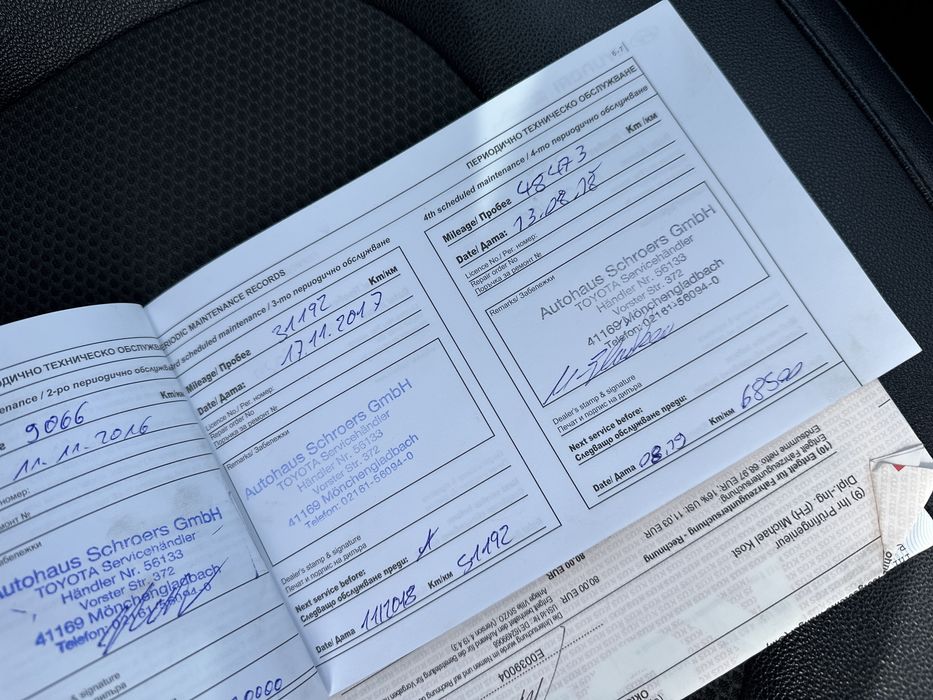 ПЕРИОДИЧНО ТЕХНИЧЕСКО ОБСЛУЖВАНЕ
2-ро периодично обслужване
9066 Км/км
11.11.2016
номер:
Забележки
Autohaus Schroers GmbH
TOYOTA Servicehändler
Händler Nr. 56133
Vorster Str. 372
41169 Mönchengladbach
Telefon: 02161-56094-0
& signature
PERIODIC MAINTENANCE RECORDS
3rd scheduled maintenance / 3-то периодично обслужване
Mileage/ Пробег 31192 Km/км
Date/ Дата: 17.11.2017
Licence No./ Рег. номер:
Repair order No
Поръчка за ремонт №
Remarks/ Забележки
Autohaus Schroers GmbH
TOYOTA Servicehändler
Händler Nr. 56133
Vorster Str. 372
41169 Mönchengladbach
Telefon: 02161-56094-0
Dealer's stamp & signature
Печат и подпис на дилъра
Next service before:
Следващо обслужване преди:
Date/ Дата 11/2018 Km/км 51192
6-7
ПЕРИОДИЧНО ТЕХНИЧЕСКО ОБСЛУЖВАНЕ
4th scheduled maintenance / 4-то периодично обслужване
Mileage/ Пробег 48473 Km /км
Date/ Дата: 13.08.18
Licence No./ Рег. номер:
Repair order No
Поръчка за ремонт №
Remarks/ Забележки
Autohaus Schroers GmbH
TOYOTA Servicehändler
Händler Nr. 56133
Vorster Str. 372
41169 Mönchengladbach
Telefon: 02161-56094-0
Dealer's stamp & signature
Печат и подпис на дилъра
Next service before:
Следващо обслужване преди:
Date/ Дата 08.19 Km/км 68500
(9) Ihr Prüfingenieur
Dipl.-Ing. (FH) Michael Kost
(10) Entgelt für Fahrzeuguntersuchung - Rechnung
Entgelt Fahrzeuguntersuchung
80,00 EUR
Endsumme netto: 68,97 EUR; 16% USt: 11,03 EUR
80,00 EUR
E0039004